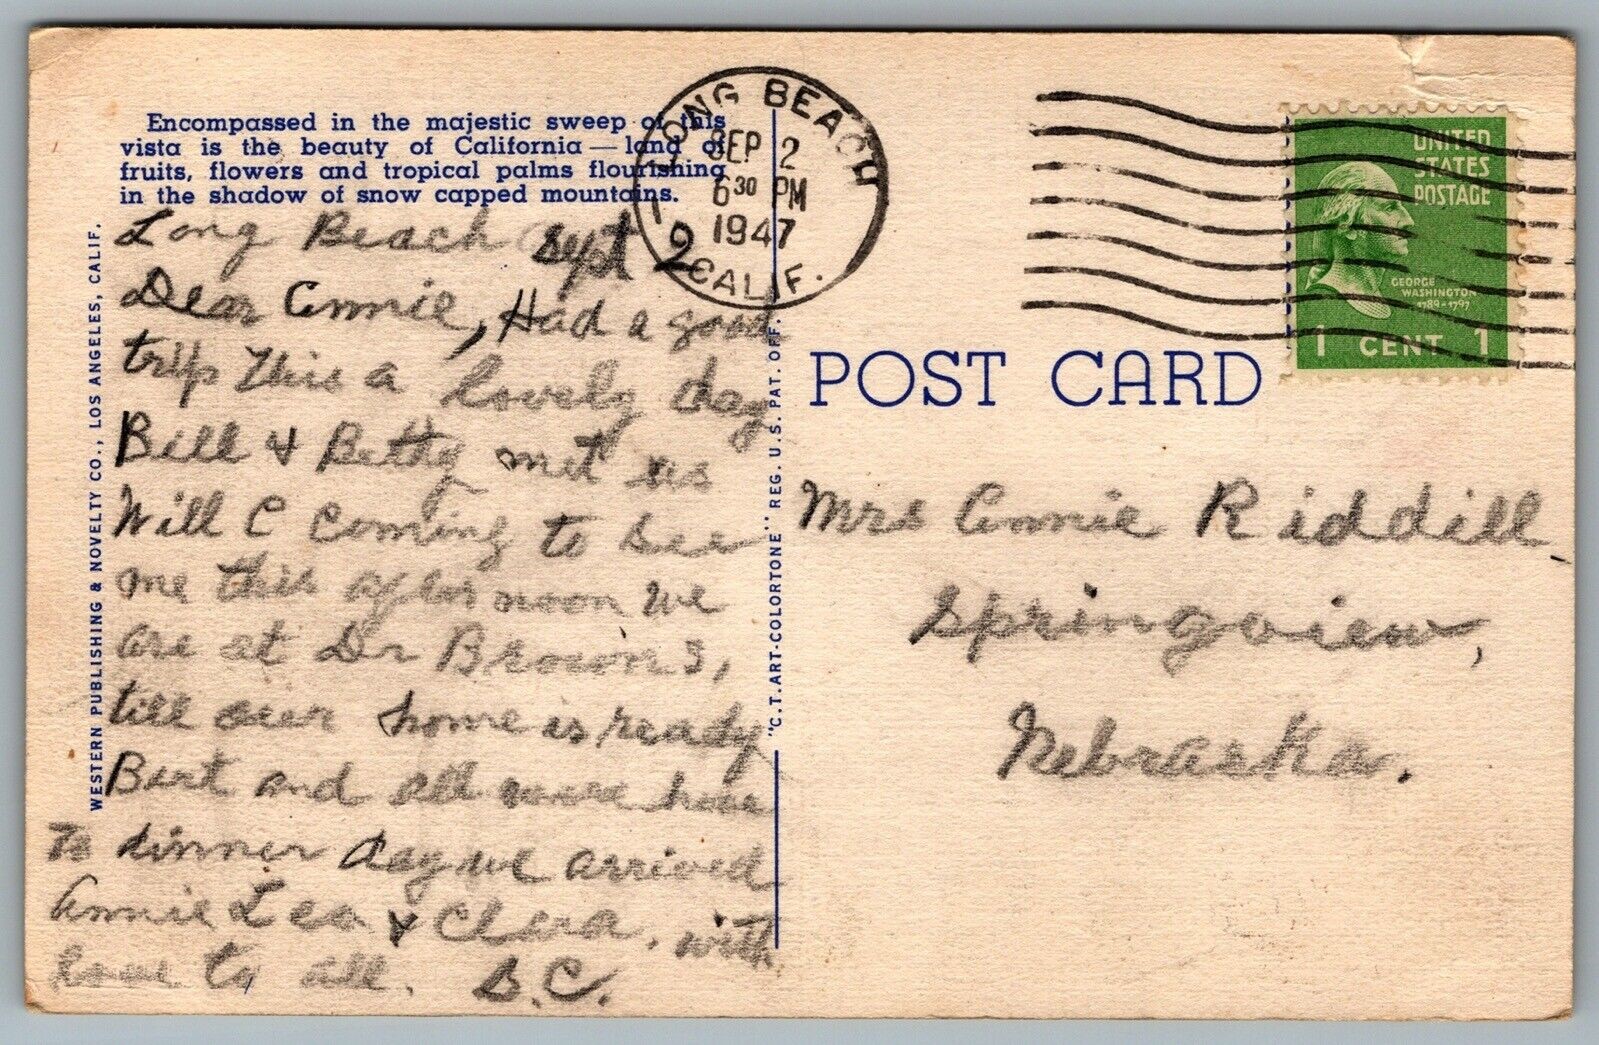 Encompassed in the majestic sweep of this
vista is the beauty of California — land of
fruits, flowers and tropical palms flourishing
in the shadow of snow capped mountains.
Long Beach Sept 2
Dear Annie, Had a good
trip This a lovely day
Bill & Betty met us
Will C coming to see
me this afternoon We
are at Dr Browns,
till our home is ready
Bert and all were here
To dinner day we arrived
Annie Lea & Clara, with
love to all. B.C.
WESTERN PUBLISHING & NOVELTY CO., LOS ANGELES, CALIF.
"C.T. ART-COLORTONE" REG. U.S. PAT. OFF.
LONG BEACH
SEP 2
6 30 PM
1947
CALIF.
UNITED
STATES
POSTAGE
GEORGE
WASHINGTON
1789-1797
1 CENT 1
POST CARD
Mrs Annie Riddill
Springview,
Nebraska.